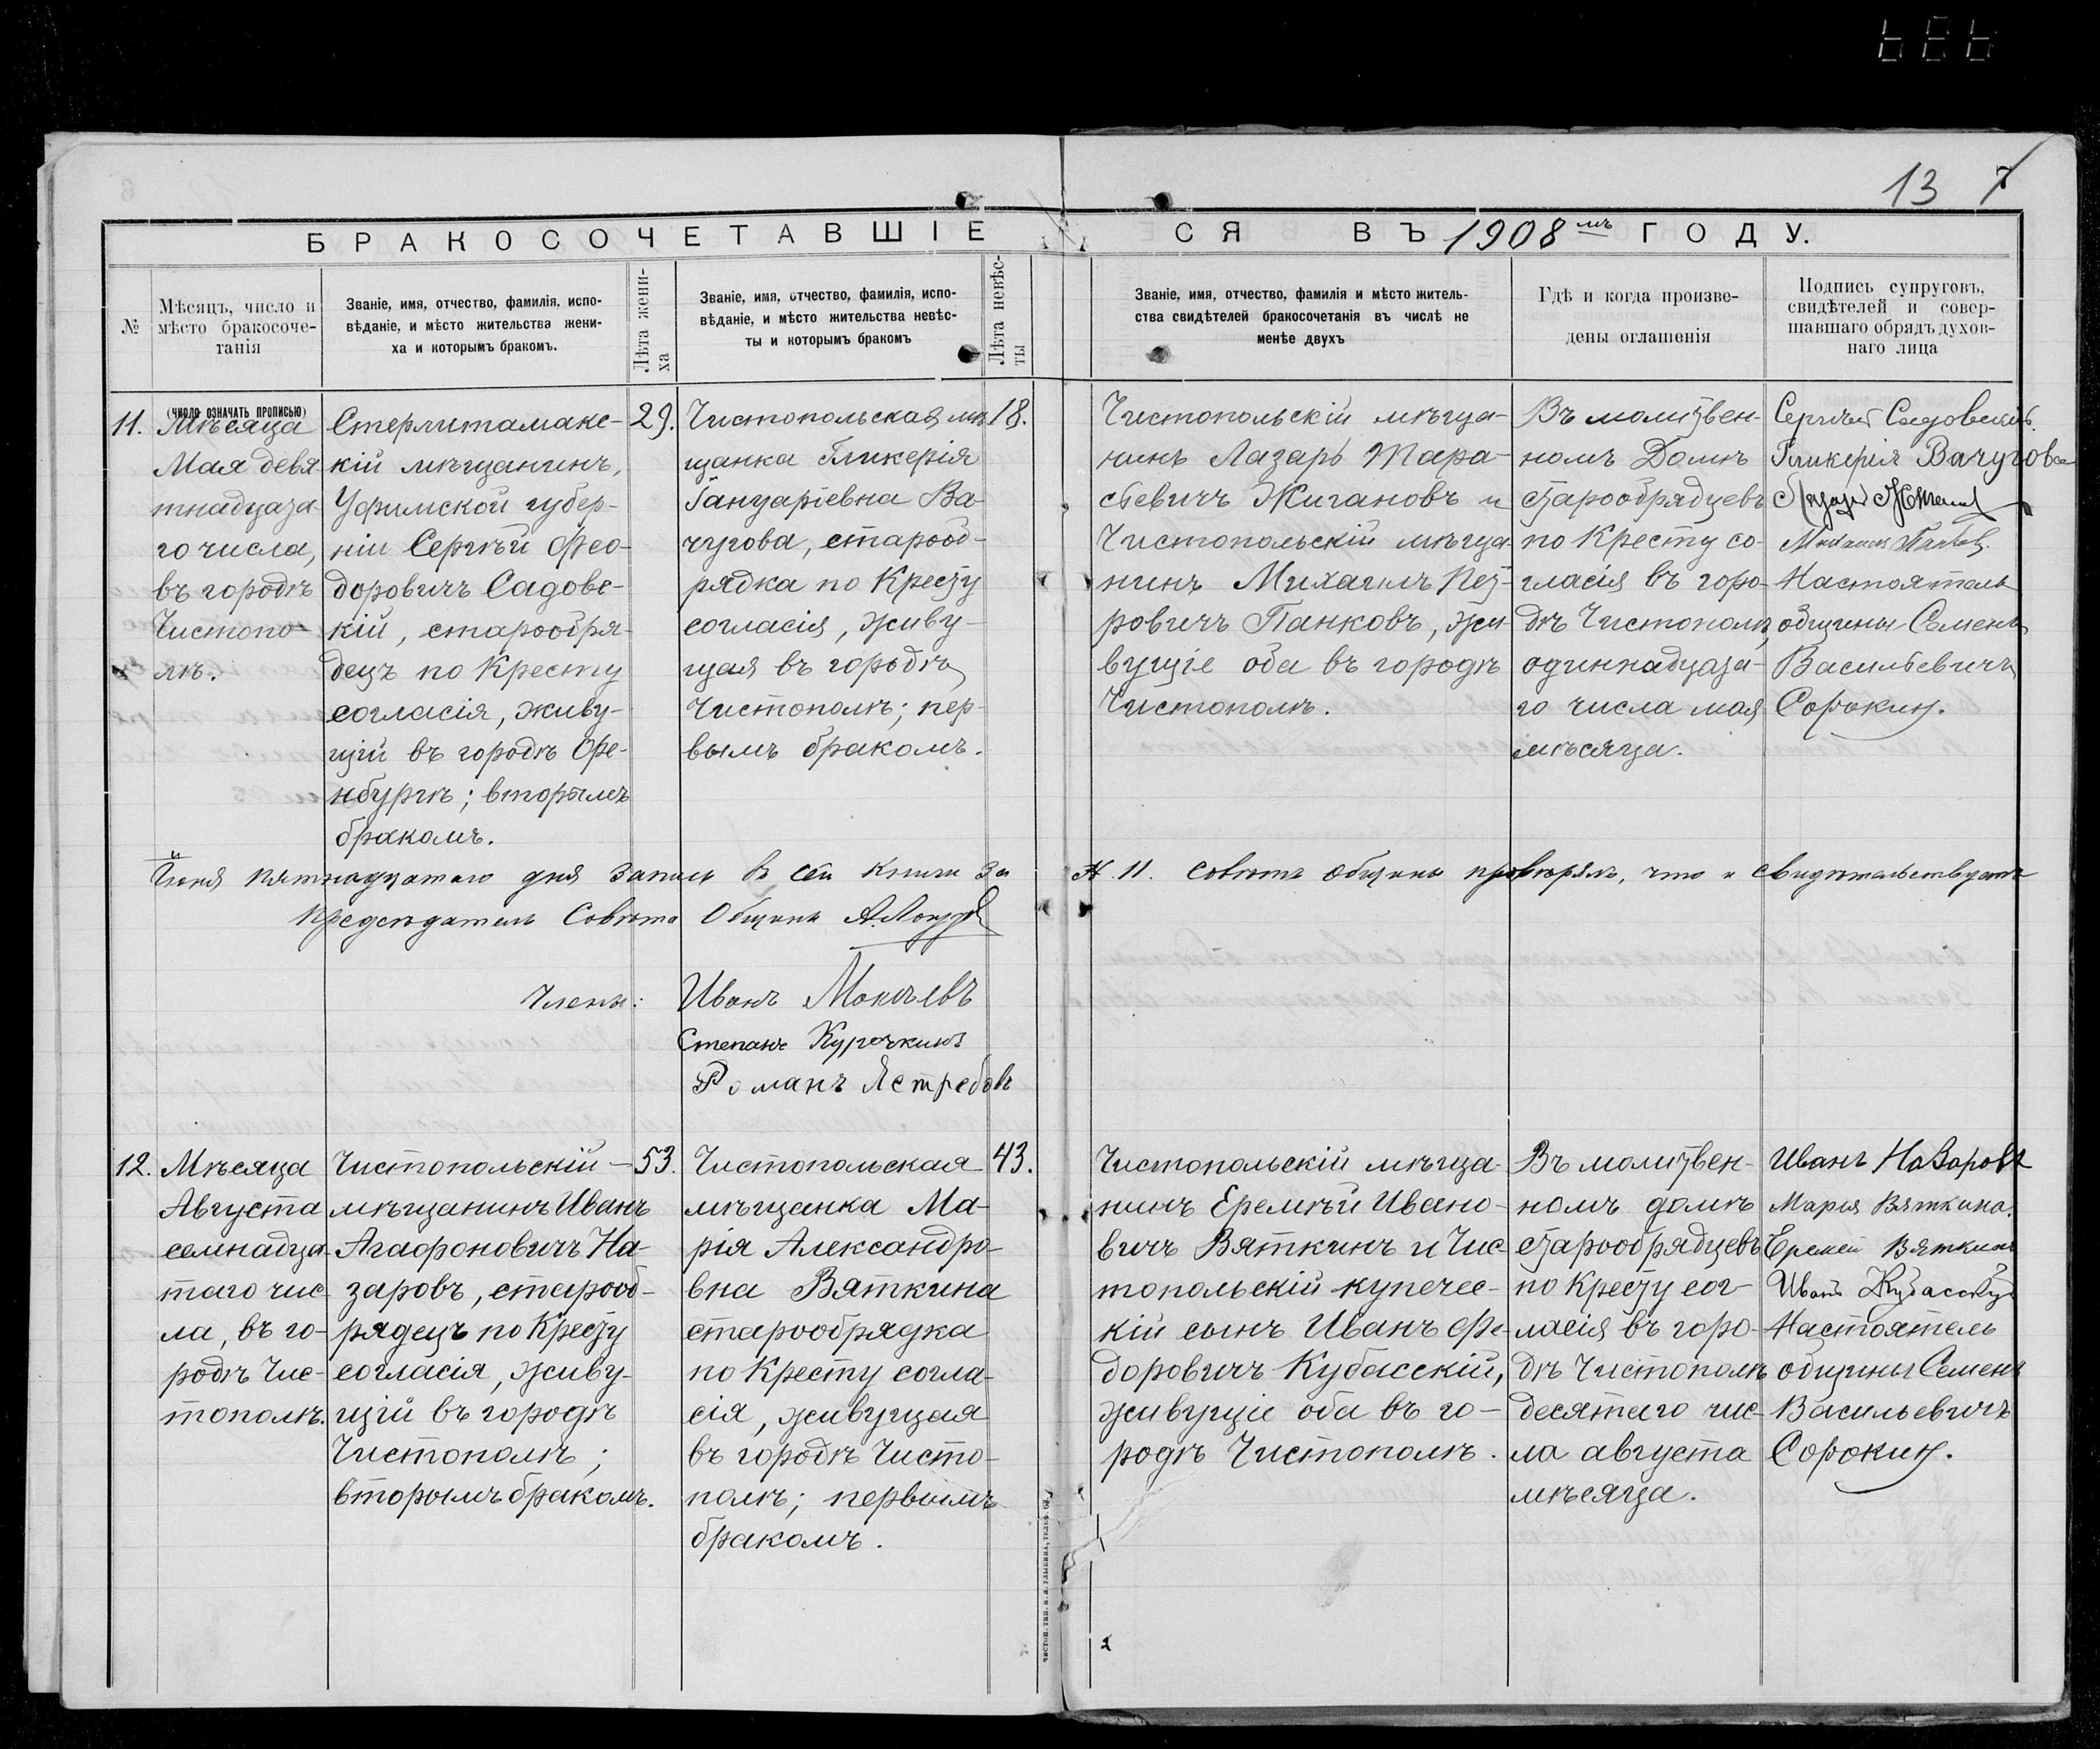 13 7
БРАКОСОЧЕТАВШІЕ
СЯ ВЪ 1908мъ ГОДУ.
№
Мѣсяцъ, число и
мѣсто бракосоче-
танія
Званіе, имя, отчество, фамилія, испо-
вѣданіе, и мѣсто жительства жени-
ха и которымъ бракомъ.
Лѣта жени-
ха
Званіе, имя, отчество, фамилія, испо-
вѣданіе, и мѣсто жительства невѣс-
ты и которымъ бракомъ
Лѣта невѣс-
ты
Званіе, имя, отчество, фамилія и мѣсто житель-
ства свидѣтелей бракосочетанія въ числѣ не
менѣе двухъ
Гдѣ и когда произве-
дены оглашенія
Подпись супруговъ,
свидѣтелей и совер-
шавшаго обрядъ духов-
наго лица
(число означать прописью)
11.
Мѣсяца
Мая девя
тнадцата
го числа,
въ городѣ
Чистопо-
лѣ.
Стерлитамакс-
кій мѣщанинъ,
Уфимской губер-
ніи Сергѣй Фео-
доровичъ Садовс-
кій, старообря-
децъ по Кресту
согласія, живу-
щій въ городѣ Оре-
нбургѣ; вторымъ
бракомъ.
29.
Чистопольская мѣ
щанка Гликерія
Іануаріевна Ва-
чугова, старооб-
рядка по Кресту
согласія, живу-
щая въ городѣ
Чистополѣ; пер-
вымъ бракомъ.
18.
Чистопольскій мѣща-
нинъ Лазарь Тара-
сьевичъ Жигановъ и
Чистопольскій мѣща-
нинъ Михаилъ Пет-
ровичъ Панковъ, жи-
вущіе оба въ городѣ
Чистополѣ.
Въ молитвен-
номъ Домѣ
старообрядцевъ
по Кресту со-
гласія въ горо-
дѣ Чистополѣ,
одиннадцата-
го числа мая
мѣсяца.
Сергѣй Садовскій.
Гликерія Вачугова
Настоятель
общины Семенъ
Васильевичъ
Сорокин.
Іюня пятнадцатаго дня запись въ сей книги за
N. 11. совѣтъ общины провѣрялъ, что и свидѣтельствуетъ
Предсѣдатель Совѣта Общины
Члены: Иванъ Мокѣевъ
Степанъ Курочкинъ
Романъ Ястребовъ
12.
Мѣсяца
Августа
семнадца
таго чис
ла, въ го-
родѣ Чис-
тополѣ.
Чистопольскій
мѣщанинъ Иванъ
Агафоновичъ На-
заровъ, старооб-
рядецъ по Кресту
согласія, живу-
щій въ городѣ
Чистополѣ;
вторымъ бракомъ.
53.
Чистопольская
мѣщанка Ма-
рія Александро-
вна Вяткина
старообрядка
по Кресту согла-
сія, живущая
въ городѣ Чисто-
полѣ; первымъ
бракомъ.
43.
Чистопольскій мѣща-
нинъ Еремѣй Ивано-
вичъ Вяткинъ и Чис-
топольскій купечес-
кій сынъ Иванъ Фе-
доровичъ Кубасскій,
живущіе оба въ го-
родѣ Чистополѣ.
Въ молитвен-
номъ домѣ
старообрядцевъ
по Кресту сог-
ласія въ горо-
дѣ Чистополѣ
десятаго чис-
ла августа
мѣсяца.
Иванъ Назаровъ
Мария Вяткина.
Еремей Вяткинъ
Настоятель
общины Семенъ
Васильевичъ
Сорокин.